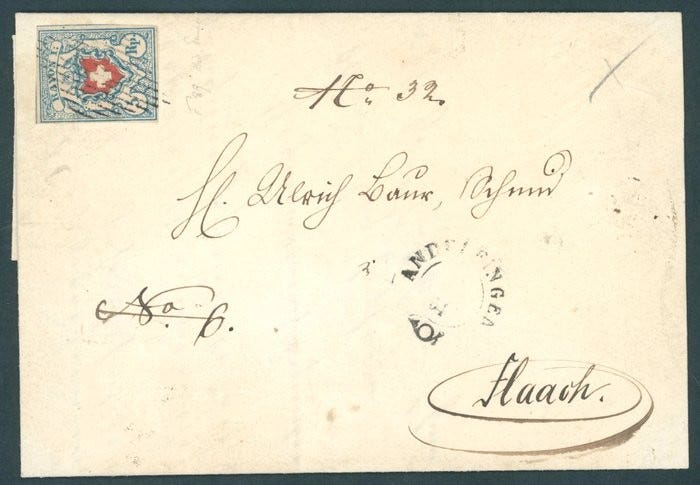 RAYON I.
5 Rp.
No. 32.
H. Ulrich Baur, Schmid
ANDELFINGEN
No. 6.
Flaach.